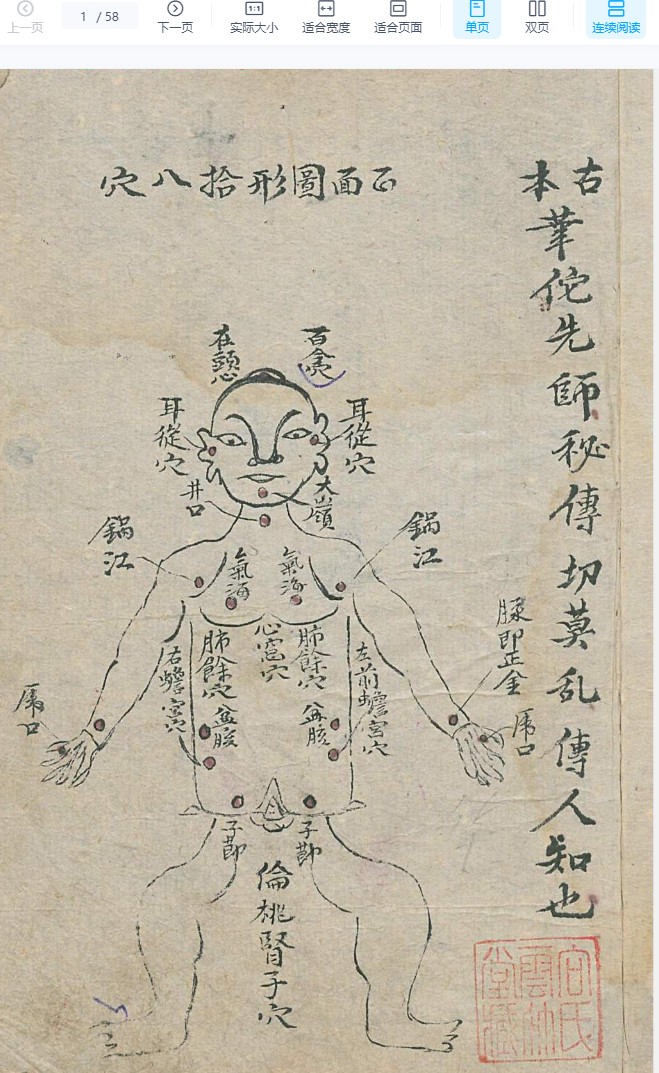 上一页
1 / 58
下一页
1:1
实际大小
适合宽度
适合页面
单页
双页
连续阅读
古本華佗先師秘傳切莫乱傳人知也
正面圖形拾八穴
百會
在頭
耳從穴
耳從穴
井口
大嶺
鍋江
鍋江
氣海
氣海
心窩穴
肺餘穴
肺餘穴
右蟾宮穴
左前蟾宮穴
盆胲
盆胲
脉即正金
虎口
虎口
子節
子節
倫桃腎子穴